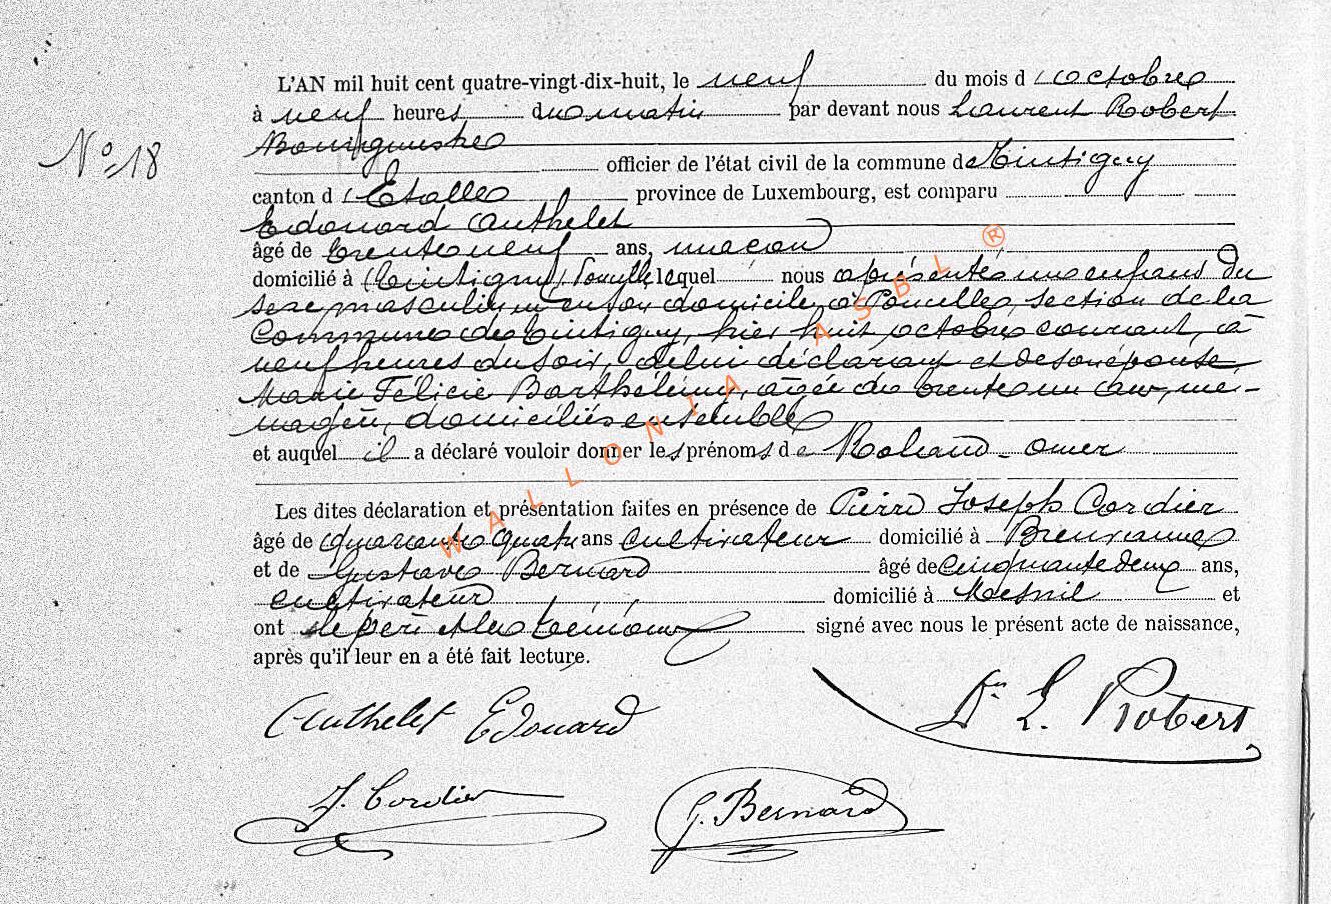 L'AN mil huit cent quatre-vingt-dix-huit, le neuf du mois d'octobre
à neuf heures du matin par devant nous Laurent Robert
Bourgmestre
N° 18
officier de l'état civil de la commune de Tintigny
canton d'Etalle province de Luxembourg, est comparu
Edouard Authelet
âgé de trente neuf ans, maçon
domicilié à (Tintigny) Poncelle lequel nous a présenté un enfant du
sexe masculin, né en son domicile, à Poncelle, section de la
Commune de Tintigny, hier huit octobre courant, à
neuf heures du soir, de lui déclarant et de son épouse
Marie Félicie Barthélemy, agée de trente un ans, mé-
nagère, domiciliés ensemble
et auquel il a déclaré vouloir donner les prénoms de Roland-Omer
Les dites déclaration et présentation faites en présence de Pierre Joseph Cordier
âgé de quarante quatre ans cultivateur domicilié à Breuvanne
et de Gustave Bernard âgé de cinquante deux ans,
cultivateur domicilié à Mesnil et
ont le père et les témoins signé avec nous le présent acte de naissance,
après qu'il leur en a été fait lecture.
Authelet Edouard
Dr L. Robert
J. Cordier
G. Bernard
WALLONIA ASBL ®